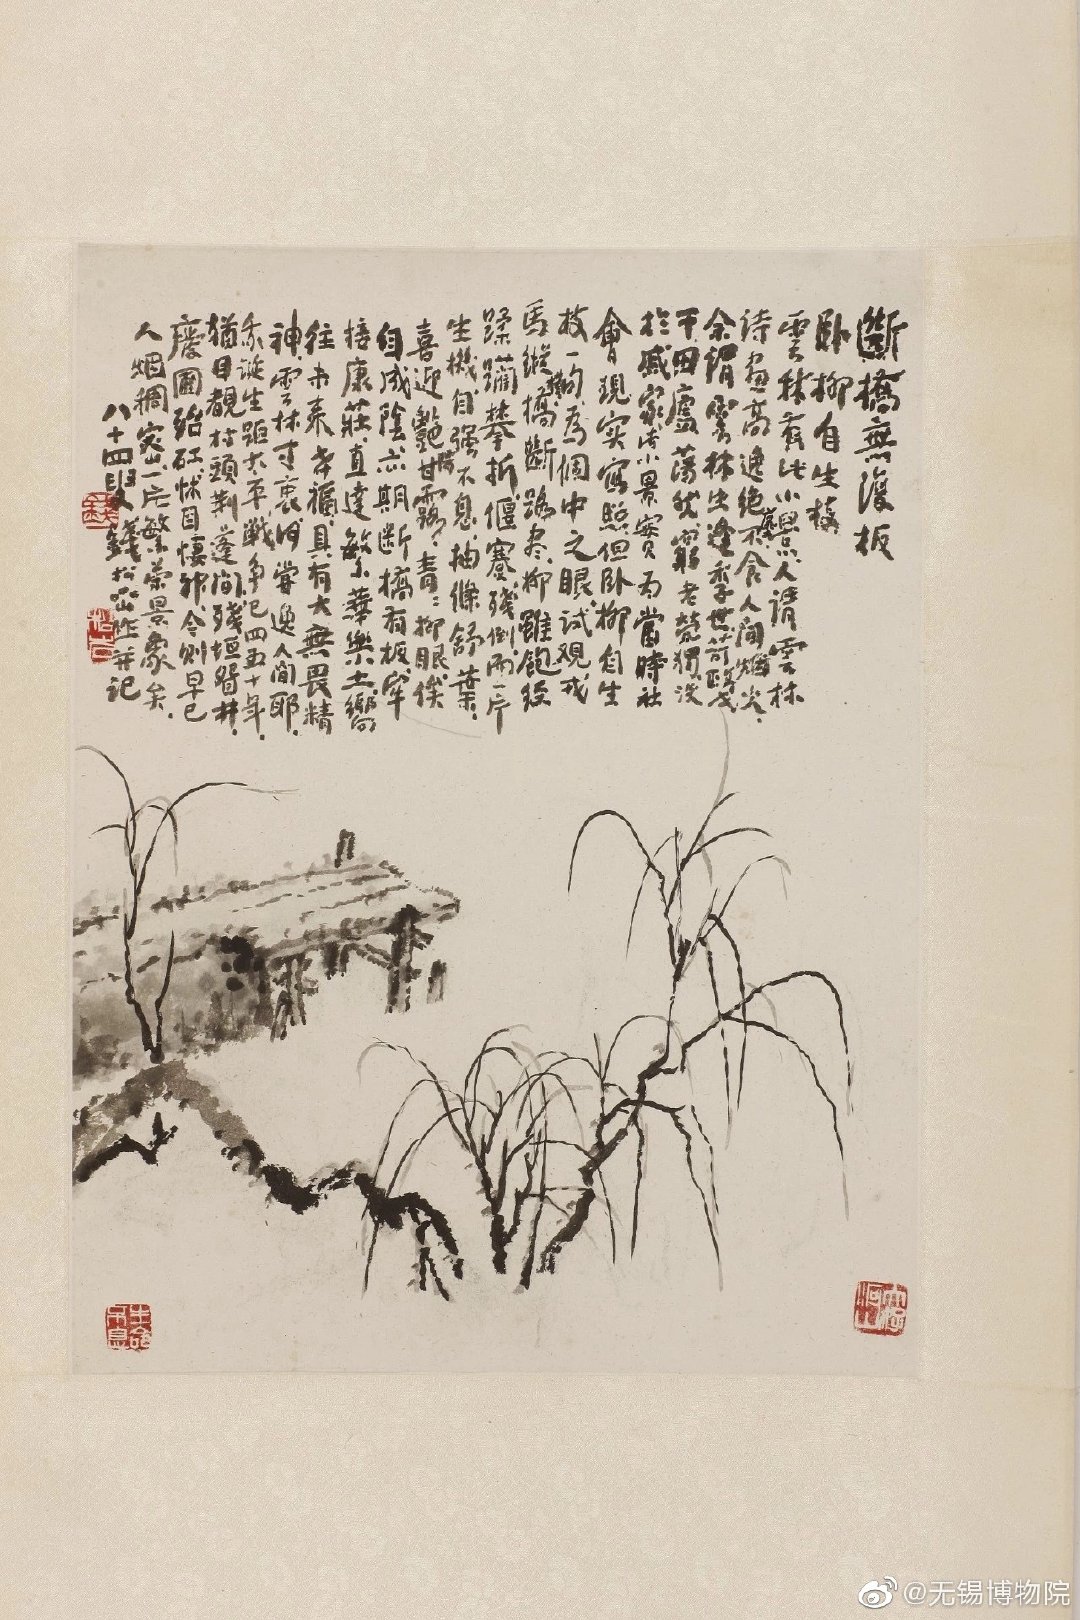 斷橋無復板
卧柳自生枝
雲林有此小景人謂雲林
詩畫高逸絕不食人間烟火
余謂雲林出逢季世苛政
下田廬蕩然窮老煢獨沒
於戚家此小景實為當時社
會現實寫照但卧柳自生
枝一句為個中之眼試觀戎
馬縱橫橋斷路盡柳雖飽經
蹂躪攀折偃蹇殘倒而一片
生機自强不息抽條舒葉
喜迎艷甘露青青柳眼俟
自成陰亦期斷橋有板牢
接康莊直達繁華樂土嚮
往未来幸福具有大無畏精
神雲林寸衷何嘗逸人間耶
余誕生距太平戰争已四五十年
猶目覩村頭荆蓬間殘垣智井
廢圃頹矼怵目悽神今則早已
人烟稠密一片繁榮景象矣
八十四叟錢松嵒作并記
@无锡博物院